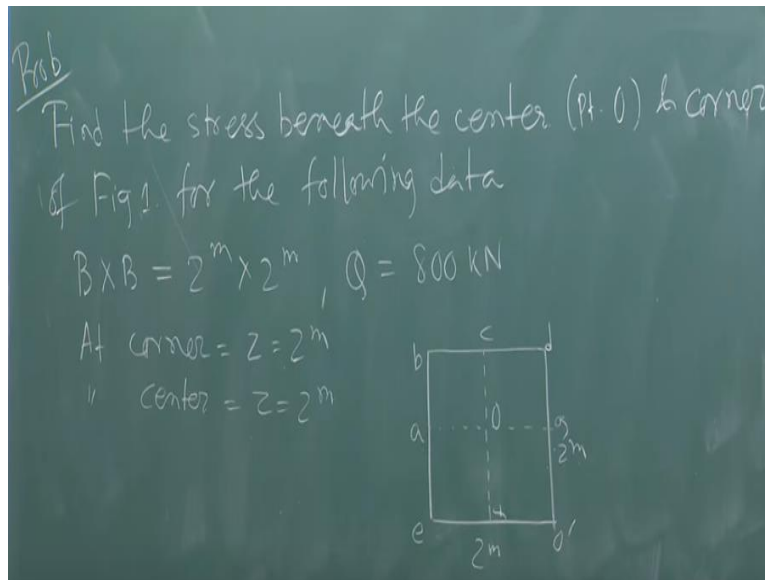 Prob
Find the stress beneath the center (Pt. O) & corner
of Fig 1. for the following data
B×B = 2ᵐ × 2ᵐ, Q = 800 KN
At corner = Z = 2ᵐ
" center = Z = 2ᵐ
b c d
a O g
2ᵐ
e f O'
2ᵐ